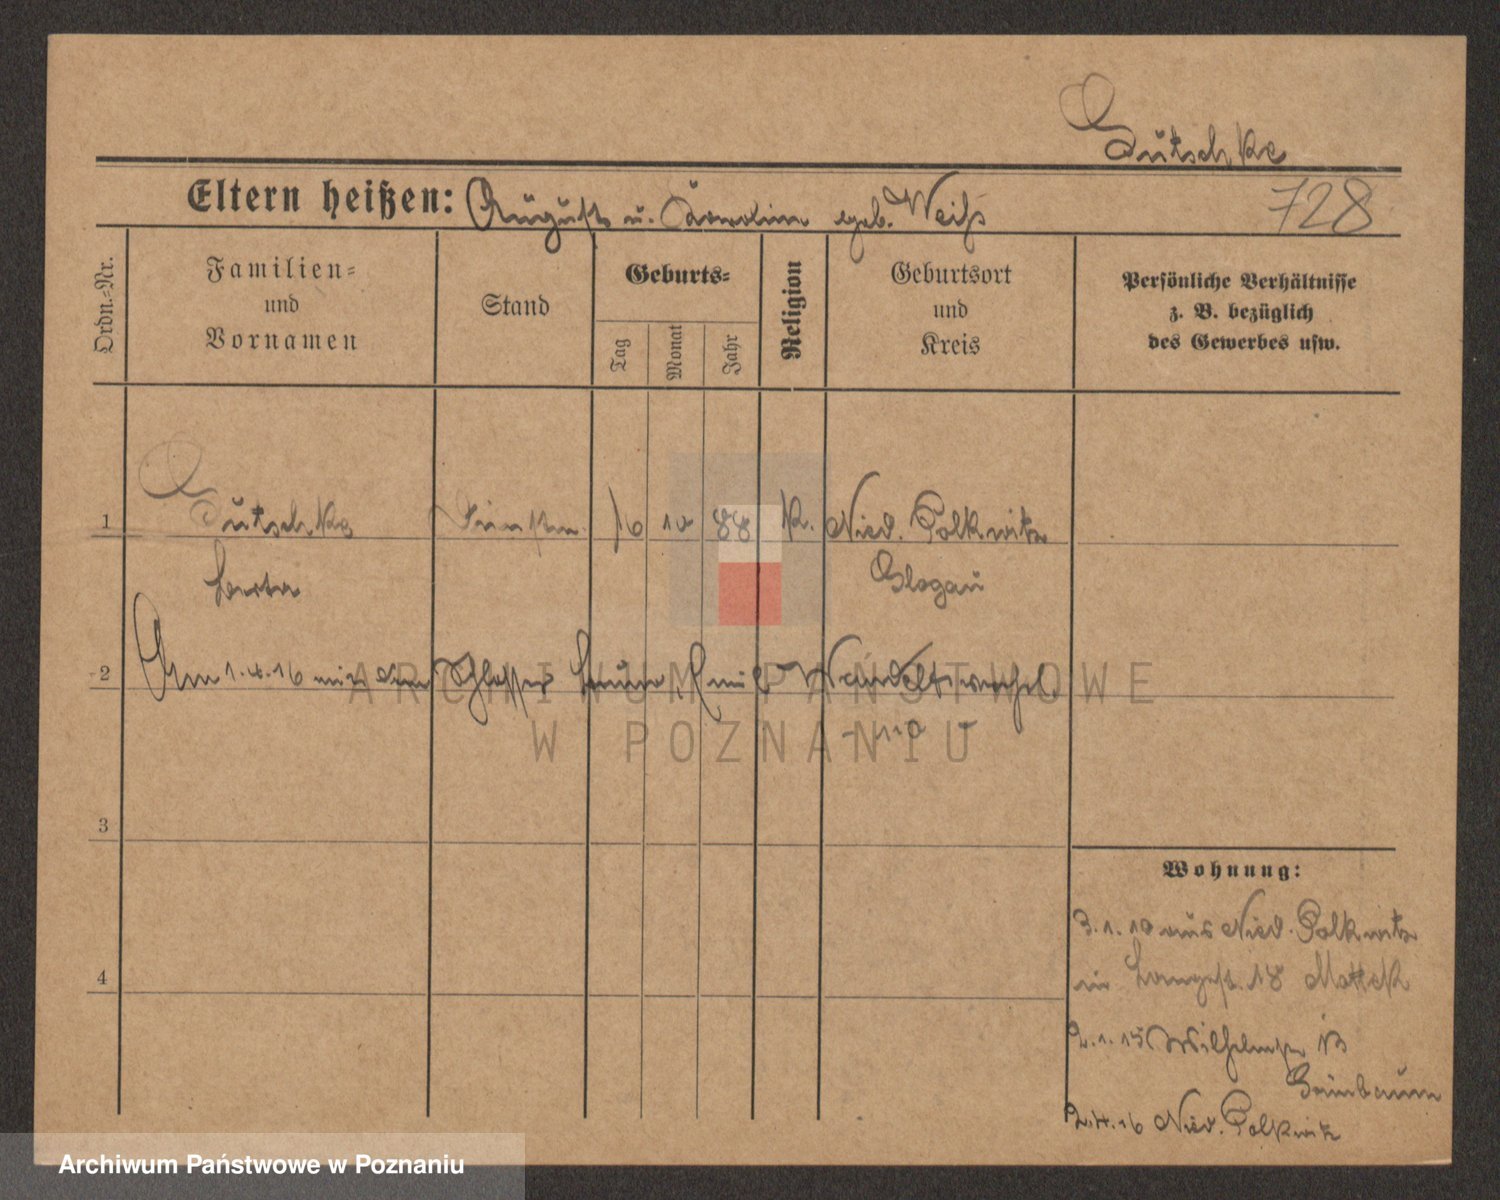 Gutschke
Eltern heißen: August u. Karoline geb. Weiß
728
Ordn.=Nr.
Familien=
und
Vornamen
Stand
Geburts=
Tag
Monat
Jahr
Religion
Geburtsort
und
Kreis
Persönliche Verhältnisse
z. B. bezüglich
des Gewerbes usw.
1
Gutschke 16 10 88 K. Nied. Polkwitz
Berta Glogau
2
Am 1.4.16 mit dem Schlosser Bruno Emil
ARCHIWUM PAŃSTWOWE
W POZNANIU
3
Wohnung:
3.1.10 aus Nied. Polkwitz
in Langest. 18
4
2.1.15 Wilhelmpl. 13
Grünbaum
2.4.16 Nied. Polkwitz
Archiwum Państwowe w Poznaniu